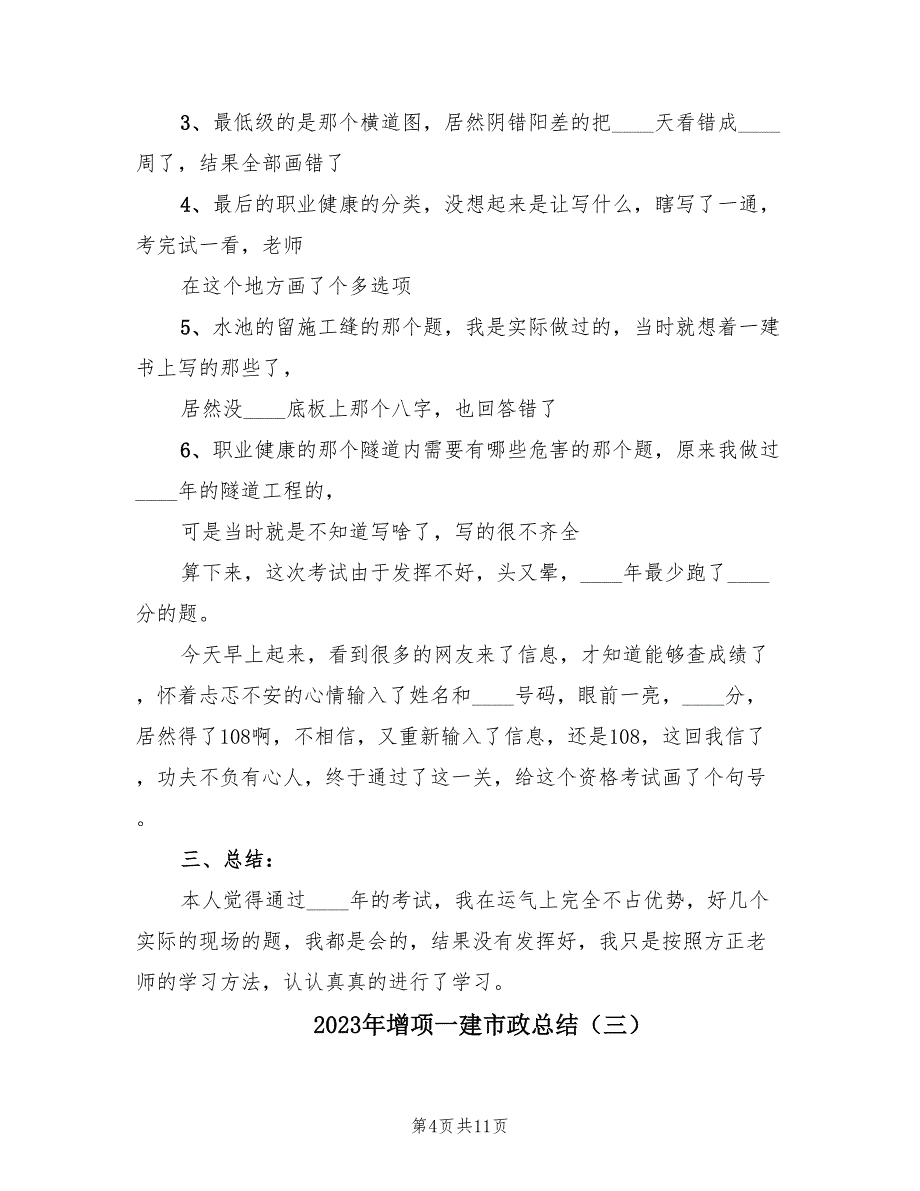 3、最低级的是那个横道图，居然阴错阳差的把____天看错成____
周了，结果全部画错了
4、最后的职业健康的分类，没想起来是让写什么，瞎写了一通，
考完试一看，老师
在这个地方画了个多选项
5、水池的留施工缝的那个题，我是实际做过的，当时就想着一建
书上写的那些了，
居然没____底板上那个八字，也回答错了
6、职业健康的那个隧道内需要有哪些危害的那个题，原来我做过
____年的隧道工程的，
可是当时就是不知道写啥了，写的很不齐全
算下来，这次考试由于发挥不好，头又晕，____年最少跑了____
分的题。
今天早上起来，看到很多的网友来了信息，才知道能够查成绩了
，怀着忐忑不安的心情输入了姓名和____号码，眼前一亮，____分，
居然得了108啊，不相信，又重新输入了信息，还是108，这回我信了
，功夫不负有心人，终于通过了这一关，给这个资格考试画了个句号
。
三、总结：
本人觉得通过____年的考试，我在运气上完全不占优势，好几个
实际的现场的题，我都是会的，结果没有发挥好，我只是按照方正老
师的学习方法，认认真真的进行了学习。
2023年增项一建市政总结（三）
第4页共11页